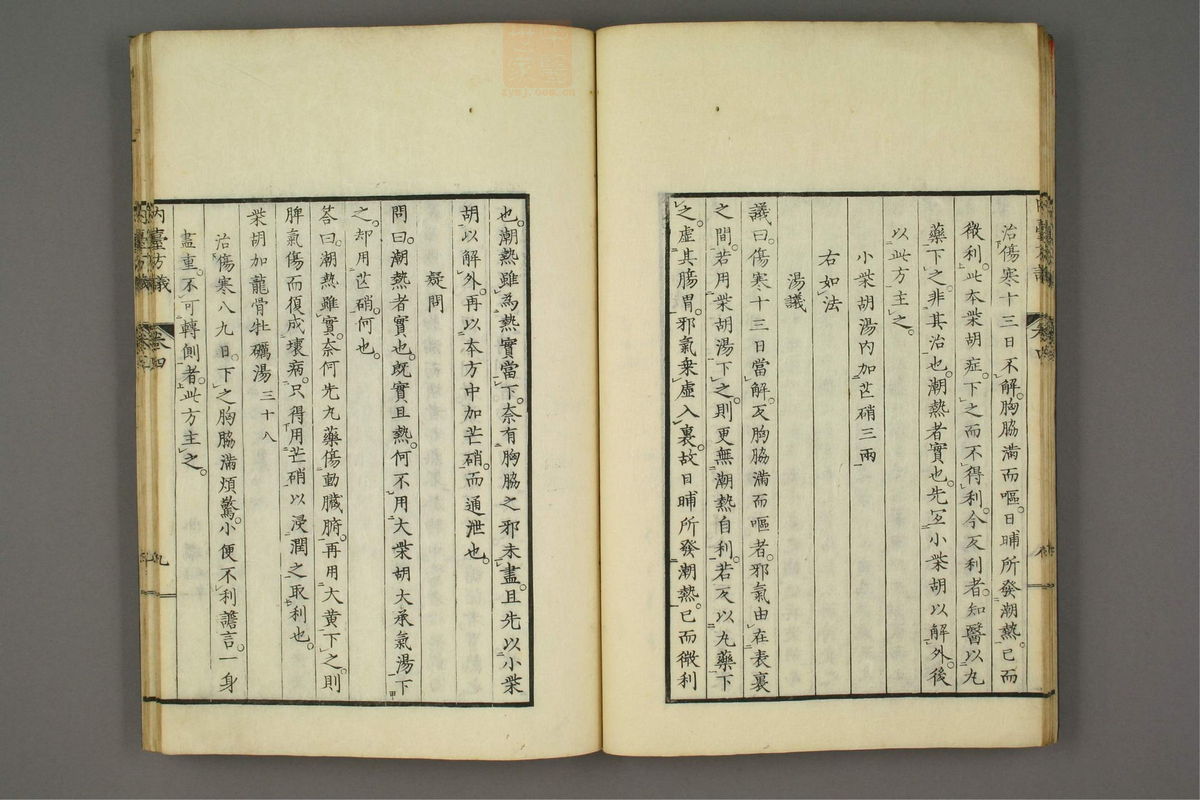 治傷寒十三日不解。胸脇滿而嘔。日晡所發潮熱。已而
微利。此本柴胡症。下之而不得利。今反利者。知醫以丸
藥下之。非其治也。潮熱者實也。先宜小柴胡以解外。後
以此方主之。
小柴胡湯內加芒硝三兩
右如法
湯議
議曰。傷寒十三日當解。反胸脇滿而嘔者。邪氣由在表裏
之間。若用柴胡湯下之。則更無潮熱自利。若反以丸藥下
之。虛其腸胃。邪氣乘虛入裏。故日晡所發潮熱。已而微利
也。潮熱雖為熱實當下。奈有胸脇之邪未盡。且先以小柴
胡以解外。再以本方中加芒硝。而通泄也。
疑問
問曰。潮熱者實也。既實且熱。何不用大柴胡大承氣湯下
之。却用芒硝。何也。
答曰。潮熱雖實。奈何先丸藥傷動臟腑。再用大黃下之。則
脾氣傷而復成壞病。只得用芒硝以浸潤之取利也。
柴胡加龍骨牡礪湯三十八
治傷寒八九日。下之胸脇滿煩驚。小便不利譫言。一身
盡重。不可轉側者。此方主之。
內臺方議
卷四